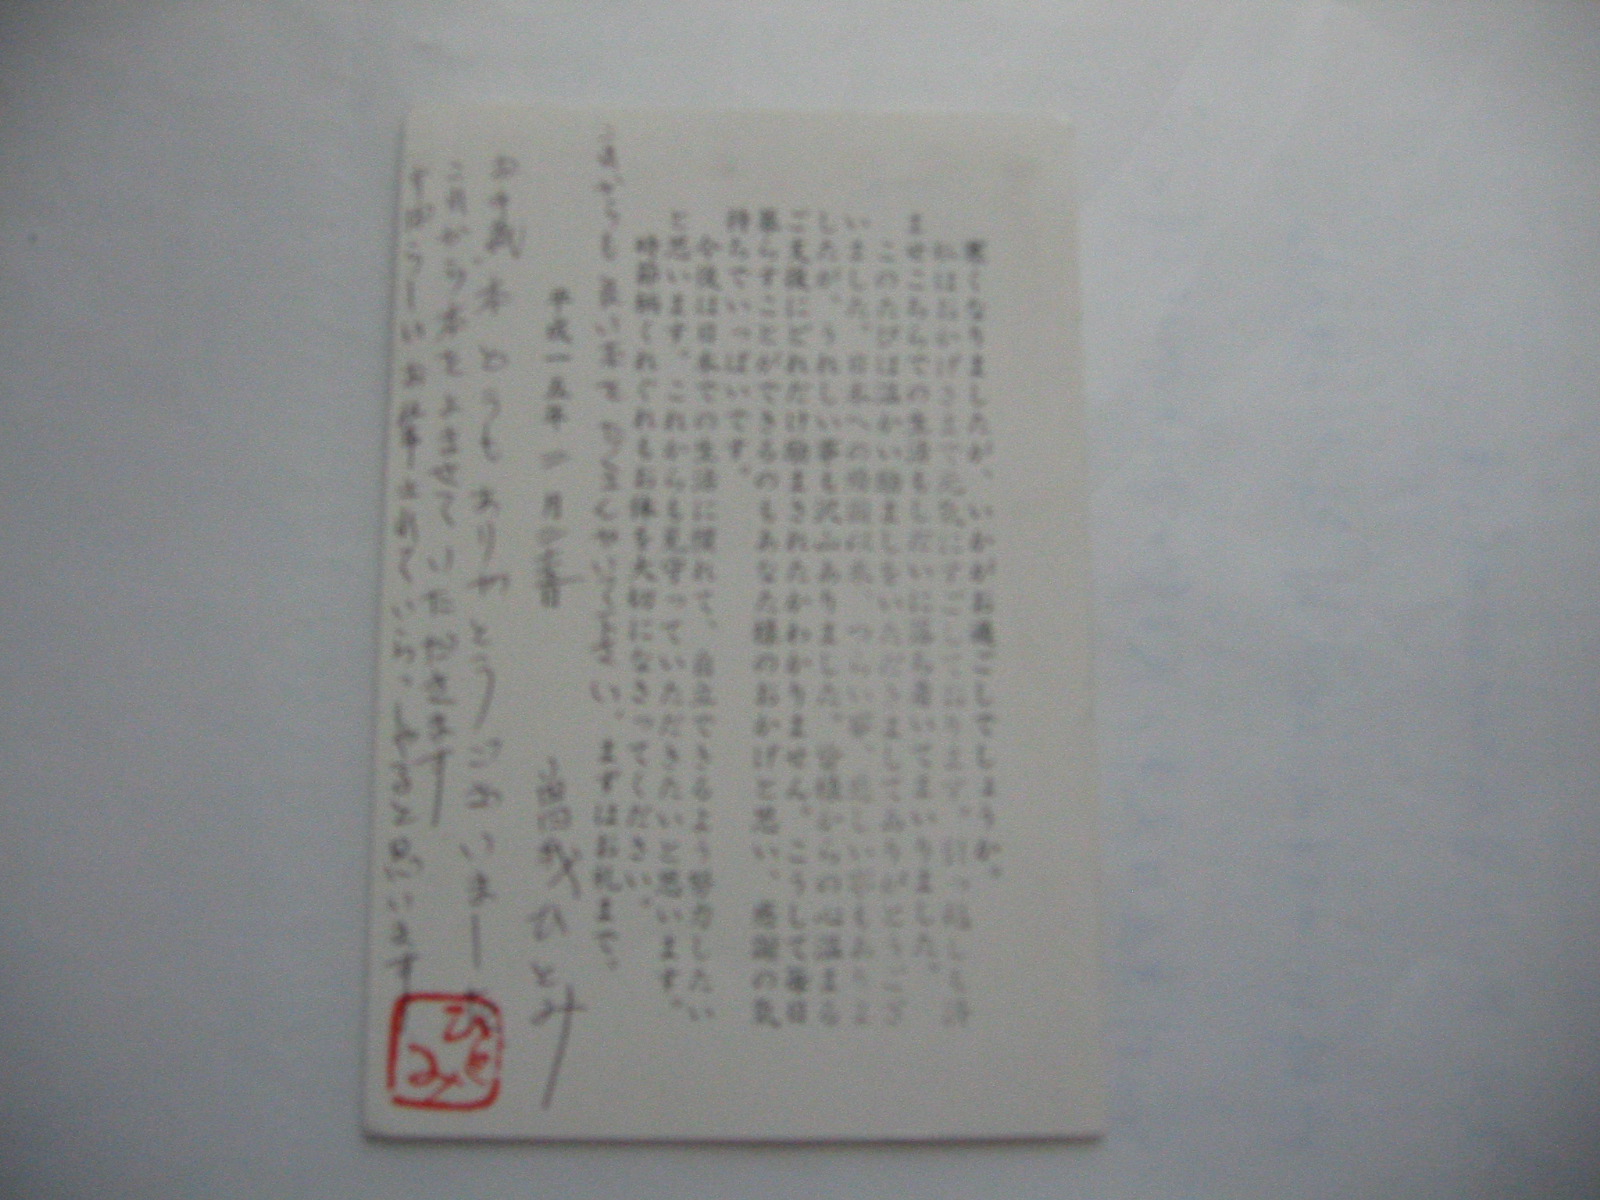 寒くなりましたが、いかがお過ごしでしょうか。
私はおかげさまで元気にすごしております。引っ越しも済
ませこちらでの生活もしだいに落ち着いてまいりました。
このたびは温かい励ましをいただきましてありがとうござ
いました。日本への帰国以来、つらい事、悲しい事もありま
したが、うれしい事も沢山ありました。皆様からの心温まる
ご支援にどれだけ励まされたかわかりません。こうして毎日
暮らすことができるのもあなた様のおかげと思い、感謝の気
持ちでいっぱいです。
今後は日本での生活に慣れて、自立できるよう努力したい
と思います。これからも見守っていただきたいと思います。
時節柄くれぐれもお体を大切になさってください。
これからも良い本を 下さい。まずはお礼まで。
平成一五年二月
曽我ひとみ
本どうもありがとうございました
これから本をよませていただきます
すばらしいお仕事されていらっしゃると思います
ひとみ